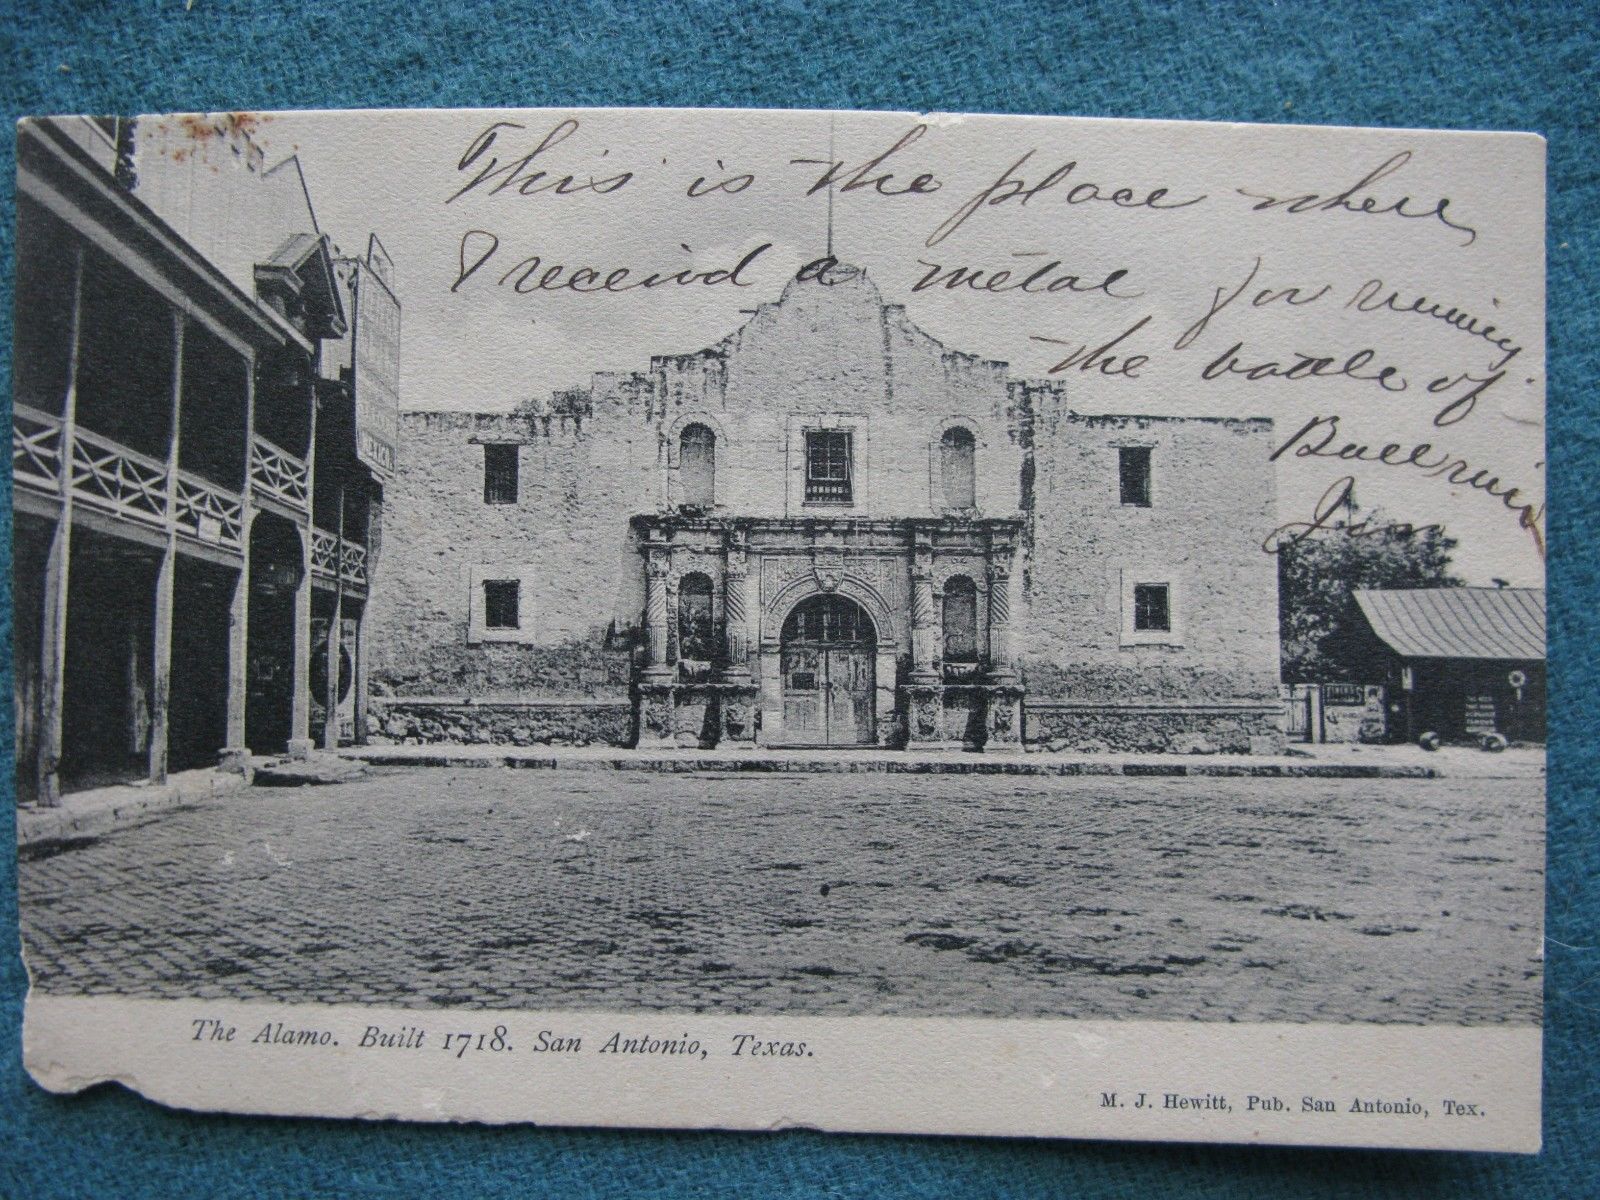 This is the place where
I receivd a metal for running
the battle of
Bull run
Jim
The Alamo. Built 1718. San Antonio, Texas.
M. J. Hewitt, Pub. San Antonio, Tex.